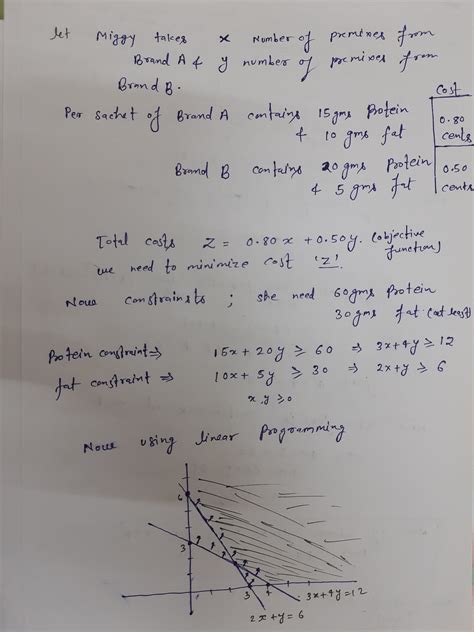 let Miggy takes x Number of premixes from
Brand A & y number of premixes from
Brand B.
Cost
Per sachet of Brand A contains 15 gms Protein
& 10 gms fat
0.80
cents
Brand B contains 20gms Protein
& 5 gms fat
0.50
cents
Total costs Z = 0.80x + 0.50y. (objective
function)
we need to minimize cost 'Z'.
Now constraints ; she need 60gms Protein
30gms fat (at least)
Protein constraint ⇒ 15x + 20y ≥ 60 ⇒ 3x+4y ≥ 12
fat constraint ⇒ 10x + 5y ≥ 30 ⇒ 2x+y ≥ 6
x,y ≥ 0
Now using linear Programming
6
3
3
4
3x+4y=12
2x+y=6